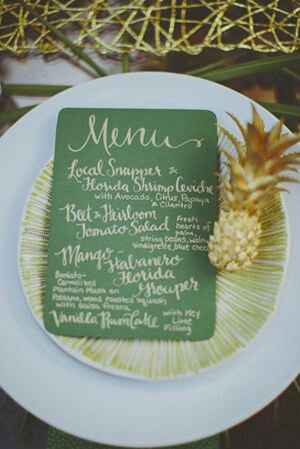 Menu
Local Snapper &
Florida Shrimp Ceviche
with Avocado, Citrus, Papaya
& Cilantro
Bed & Heirloom
Tomato Salad
Fresh
hearts of
palm,
string beans,
vinaigrette, blue cheese
Mango
Habanero
Florida
Grouper
Caramelized
Plantain Mash on
roasted squash
with salsa fresca
Vanilla Rum Cake
with Key
Lime
Filling